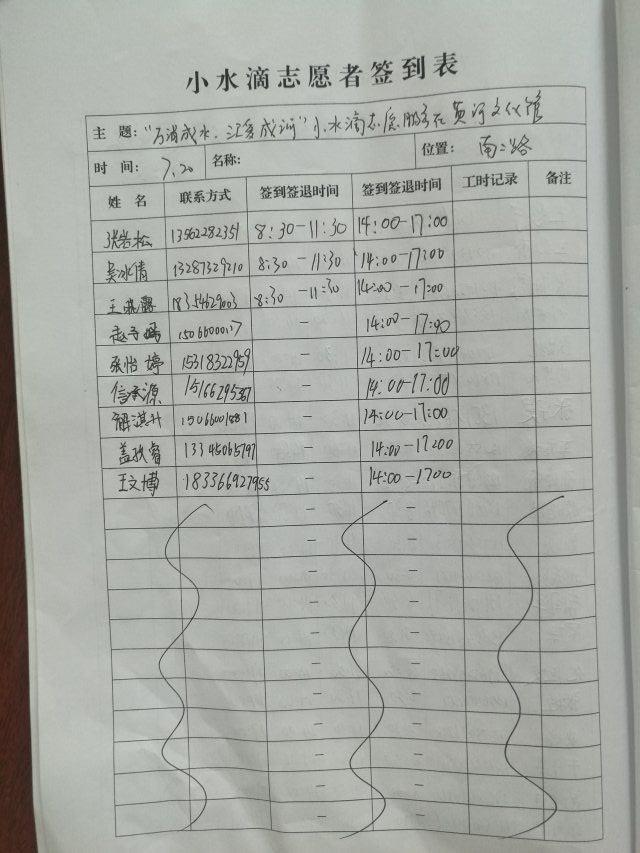 小水滴志愿者签到表
主 题: "万滴成水,汇多成河" 小水滴志愿服务在黄河文化馆
时 间: 7.20 名称: 位置: 南二路
姓 名 联系方式 签到签退时间 签到签退时间 工时记录 备注
张岩松 13562282351 8:30-11:30 14:00-17:00
吴冰倩 13287329210 8:30-11:30 14:00-17:00
王 18354629003 8:30-11:30 14:00-17:00
赵 - 14:00-17:00
张怡婷 15318322959 - 14:00-17:00
信 源 - 14:00-17:00
解淇升 15066001881 - 14:00-17:00
盖 睿 13345065797 - 14:00-17:00
王文博 18336692795 - 14:00-17:00
- -
- -
- -
- -
- -
- -
- -
- -
- -
- -
- -